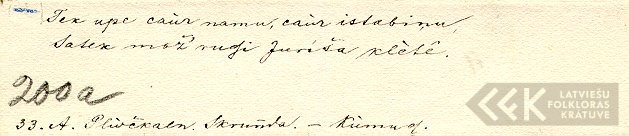 Tek upe caùr namu, caùr istabiņu,
Satek mož rudzi Juriša klêtê.
200a
33. A. Plivčkaln. Skruñda. – Rūmu
LATVIEŠU
FOLKLORAS
KRĀTUVE